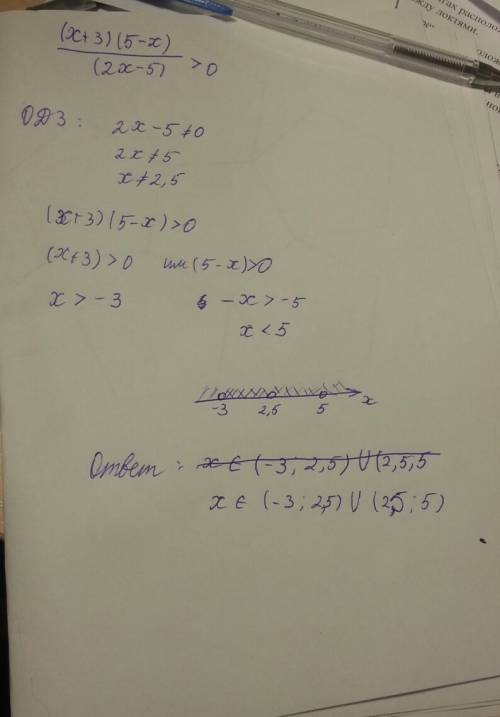 тах располо
жду локтями.
(x+3)(5-x)
(2x-5) >0
ОДЗ: 2x-5≠0
2x≠5
x≠2,5
(x+3)(5-x)>0
(x+3)>0 или (5-x)>0
x>-3 -x>-5
x<5
-3 2,5 5 x
Ответ: x∈(-3; 2,5)∪(2,5,5
x∈ (-3; 2,5)∪(2,5; 5)